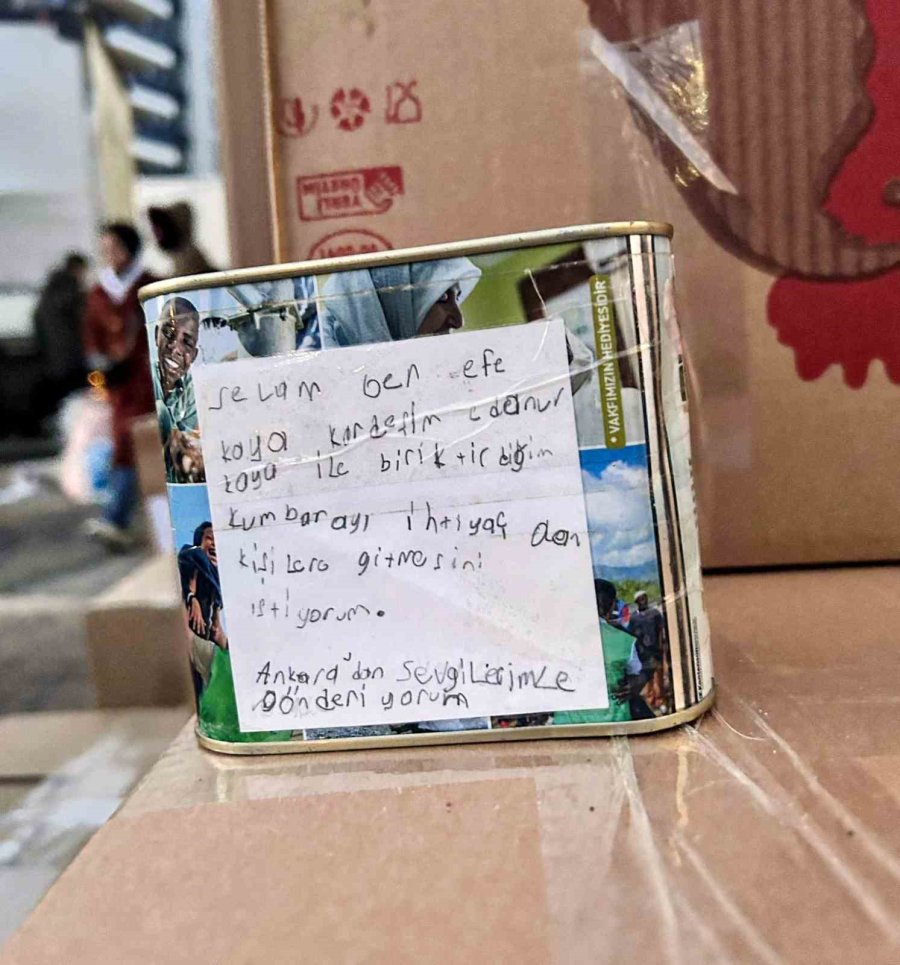 selam ben efe
kaya kardeşim edanur
kaya ile biriktirdiğim
kumbarayı ihtiyaç dan
kişilere gitmesini
istiyorum.
Ankara'dan sevgilerimle
gönderi yorum
• VAKFIMIZIN HEDİYESİDİR